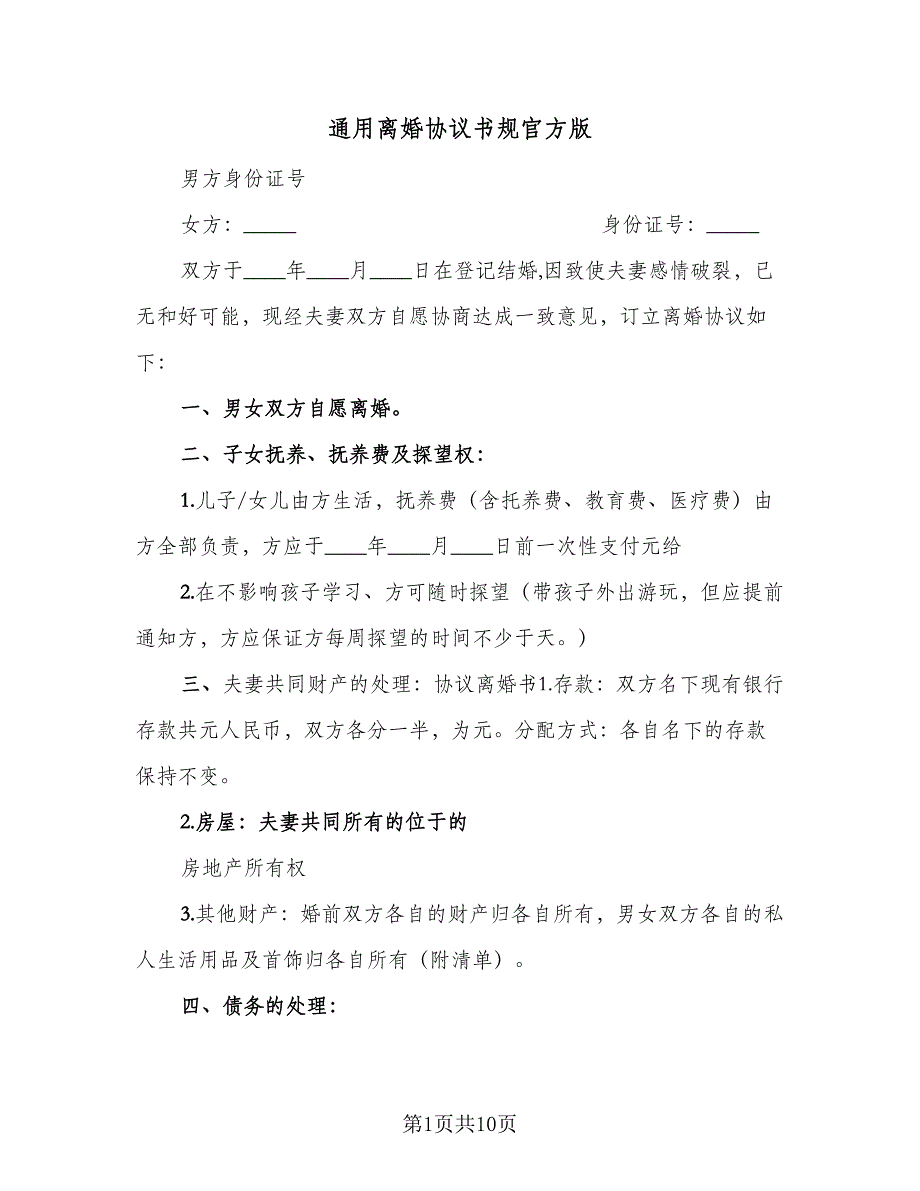 通用离婚协议书规官方版
男方身份证号
女方：_____ 身份证号：_____
双方于____年____月____日在登记结婚,因致使夫妻感情破裂，已
无和好可能，现经夫妻双方自愿协商达成一致意见，订立离婚协议如
下：
一、男女双方自愿离婚。
二、子女抚养、抚养费及探望权：
1.儿子/女儿由方生活，抚养费（含托养费、教育费、医疗费）由
方全部负责，方应于____年____月____日前一次性支付元给
2.在不影响孩子学习、方可随时探望（带孩子外出游玩，但应提前
通知方，方应保证方每周探望的时间不少于天。）
三、夫妻共同财产的处理：协议离婚书1.存款：双方名下现有银行
存款共元人民币，双方各分一半，为元。分配方式：各自名下的存款
保持不变。
2.房屋：夫妻共同所有的位于的
房地产所有权
3.其他财产：婚前双方各自的财产归各自所有，男女双方各自的私
人生活用品及首饰归各自所有（附清单）。
四、债务的处理：
第1页共10页